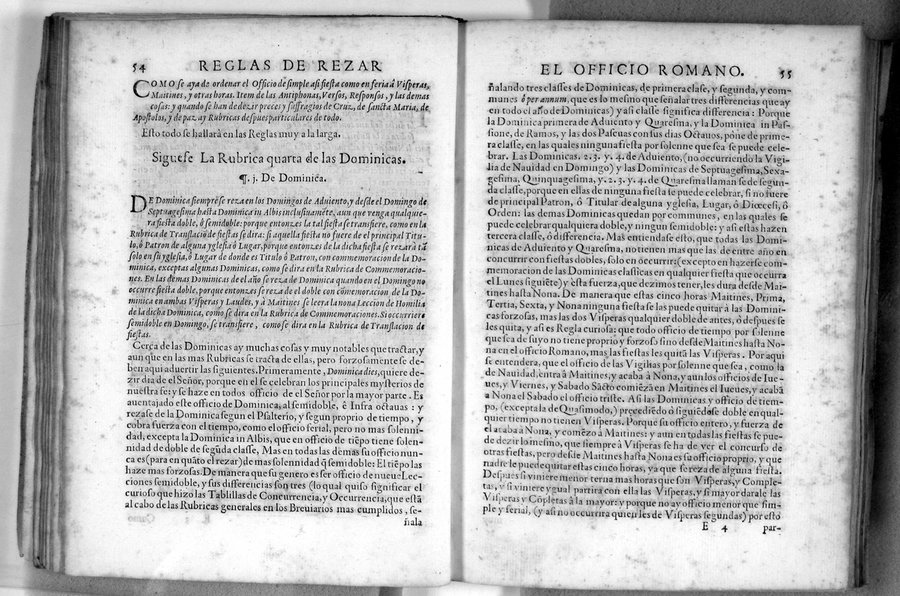 54 REGLAS DE REZAR
COMO se aya de ordenar el Officio de simple asi fiesta como en feria à Visperas,
Maitines, y otras horas. Item de las Antiphonas, Versos, Responsos, y las demas
cosas: y quando se han de dezir preces y suffragios de Cruz, de sancta Maria, de
Apostolos, y de paz, ay Rubricas despues particulares de todo.
Esto todo se hallarà en las Reglas muy a la larga.
Siguese La Rubrica quarta de las Dominicas.
¶. j. De Dominica.
DE Dominica siempre se reza en los Domingos de Aduiento, y desde el Domingo de
Septuagesima hasta Dominica in Albis inclusiuamẽte, aun que venga qualquie-
ra fiesta doble, ò semidoble: porque entonces la tal fiesta se transfiere, como en la
Rubrica de Translaciõ de fiestas se dira: si aquella fiesta no fuere de el principal Titu-
lo, ò Patron de alguna yglesia ò Lugar, porque entonzes de la dicha fiesta se rezarà tã
solo en su yglesia, ò Lugar de donde es Titulo ò Patron, con commemoracion de la Do-
minica, exceptas algunas Dominicas, como se dira en la Rubrica de Commemoracio-
nes. En las demas Dominicas de el año se reza de Dominica quando en el Domingo no
occurre fiesta doble, porque entonces se reza de el doble con cõmemoracion de la Do-
minica en ambas Visperas y Laudes, y à Maitines se leera la nona Leccion de Homilia
de la dicha Dominica, como se dira en la Rubrica de Commemoraciones. Si occurriere
semidoble en Domingo, se transfiere, como se dira en la Rubrica de Translacion de
fiestas.
Cerca de las Dominicas ay muchas cosas y muy notables que tractar, y
aun que en las mas Rubricas se tracta de ellas, pero forzosamente se de-
ben aqui advertir las siguientes. Primeramente, Dominica dies, quiere de-
zir dia de el Señor, porque en el se celebran los principales mysterios de
nuestra fe: y se haze en todos officio de el Señor por la mayor parte. Es
auentajado este officio de Dominica, al semidoble, è Infra octauas: y
rezase de la Dominica segun el Psalterio, y segun proprio de tiempo, y
cobra fuerza con el tiempo, como el officio ferial, pero no mas solenni-
dad, excepta la Dominica in Albis, que en officio de tiẽpo tiene solen-
nidad de doble de segũda classe, Mas en todas las demas su officio nun-
ca es (para en quãto el rezar) de mas solennidad q̃ semidoble: El tiẽpo las
haze mas forzosas. De manera que su genero es ser officio de nueue Lec-
ciones semidoble, y sus differencias son tres (lo qual quiso significar el
curioso que hizo las Tablillas de Concurrencia, y Occurrencia, que està
al cabo de las Rubricas generales en los Breuiarios mas cumplidos, se-
ñala
EL OFFICIO ROMANO. 55
ñalando tres classes de Dominicas, de primera classe, y segunda, y com-
munes ò per annum, que es lo mesmo que señalar tres differencias que ay
en todo el año de Dominicas) y asi classe significa differencia: Porque
la Dominica primera de Aduiento y Quaresma, y la Dominica in Pas-
sione, de Ramos, y las dos Pascuas con sus dias Octauos, põne de prime-
ra classe, en las quales ninguna fiesta por solenne que sea se puede cele-
brar. Las Dominicas. 2. 3. y. 4. de Aduiento, (no occurriendo la Vigi-
lia de Nauidad en Domingo) y las Dominicas de Septuagesima, Sexa-
gesima, Quinquagesima, y. 2. 3. y. 4. de Quaresma llaman se de segun-
da classe, porque en ellas de ninguna fiesta se puede celebrar, si no fuere
de principal Patron, ò Titular de alguna yglesia, Lugar, ò Diocesi, ò
Orden: las demas Dominicas quedan por communes, en las quales se
puede celebrar qualquiera doble, y ningun semidoble: y asi estas hazen
tercera classe, ò differencia. Mas entiendase esto, que todas las Domi-
nicas de Aduiento y Quaresma, no tienen mas que las de entre año en
concurrir con fiestas dobles, solo en occurrir; (excepto en hazerse com-
memoracion de las Dominicas classicas en qualquier fiesta que occurra
el Lunes siguiẽte) y esta fuerza, que dezimos tener, les dura desde Mai-
tines hasta Nona. De manera que estas cinco horas Maitines, Prima,
Tertia, Sexta, y Nona ninguna fiesta se las puede quitar à las Domini-
cas forzosas, mas las dos Visperas qualquier doble de antes, ò despues se
les quita, y asi es Regla curiosa: que todo officio de tiempo por solenne
que sea de suyo no tiene proprio y forzoso sino desde Maitines hasta No-
na en el officio Romano, mas las fiestas les quitã las Visperas. Por aqui
se entendera, que el officio de las Vigilias por solenne que sea, como la
de Nauidad, entra â Maitines, y acaba â Nona, y aun los officios de Iue-
ues, y Viernes, y Sabado Sãcto comiẽzã en Maitines el Iueues, y acabã
a Nona el Sabado el officio triste. Asi las Dominicas y officio de tiem-
po, (excepta la de Quasimodo,) precediẽdo ò siguiẽdose doble en qual-
quier tiempo no tienen Visperas. Porque su officio entero, y fuerza de
el acaba à Nona, y comẽzo a Maitines: y aun en todas las fiestas se pue-
de dezir lo mesmo, que siempre à Visperas se ha de ver el concurso de
otras fiestas, pero desde Maitines hasta Nona es su officio proprio, y que
nadie le puede quitar estas cinco horas, ya que se reza de alguna fiesta.
Despues si viniere menor terna mas horas que son Visperas, y Comple-
tas, y si viniere ygual partira con ella las Visperas, y si mayor darale las
Visperas y Cõpletas à la mayor: y porque no ay officio menor que sim-
ple y ferial, (y asi no occurrira quien les de Visperas segundas) por esto
E 4 par-